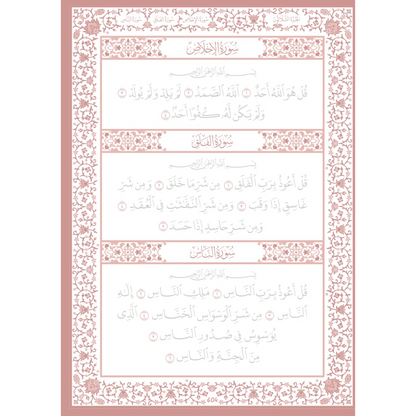 سُورَةُ الإِخْلَاصِ
بِسْمِ اللَّهِ الرَّحْمَٰنِ الرَّحِيمِ
قُلْ هُوَ اللَّهُ أَحَدٌ ١ اللَّهُ الصَّمَدُ ٢ لَمْ يَلِدْ وَلَمْ يُولَدْ ٣
وَلَمْ يَكُن لَّهُ كُفُوًا أَحَدٌ ٤
سُورَةُ الفَلَقِ
بِسْمِ اللَّهِ الرَّحْمَٰنِ الرَّحِيمِ
قُلْ أَعُوذُ بِرَبِّ الْفَلَقِ ١ مِن شَرِّ مَا خَلَقَ ٢ وَمِن شَرِّ
غَاسِقٍ إِذَا وَقَبَ ٣ وَمِن شَرِّ النَّفَّٰثَٰتِ فِي الْعُقَدِ ٤
وَمِن شَرِّ حَاسِدٍ إِذَا حَسَدَ ٥
سُورَةُ النَّاسِ
بِسْمِ اللَّهِ الرَّحْمَٰنِ الرَّحِيمِ
قُلْ أَعُوذُ بِرَبِّ النَّاسِ ١ مَلِكِ النَّاسِ ٢ إِلَٰهِ
النَّاسِ ٣ مِن شَرِّ الْوَسْوَاسِ الْخَنَّاسِ ٤ الَّذِي
يُوَسْوِسُ فِي صُدُورِ النَّاسِ ٥
مِنَ الْجِنَّةِ وَالنَّاسِ ٦
604